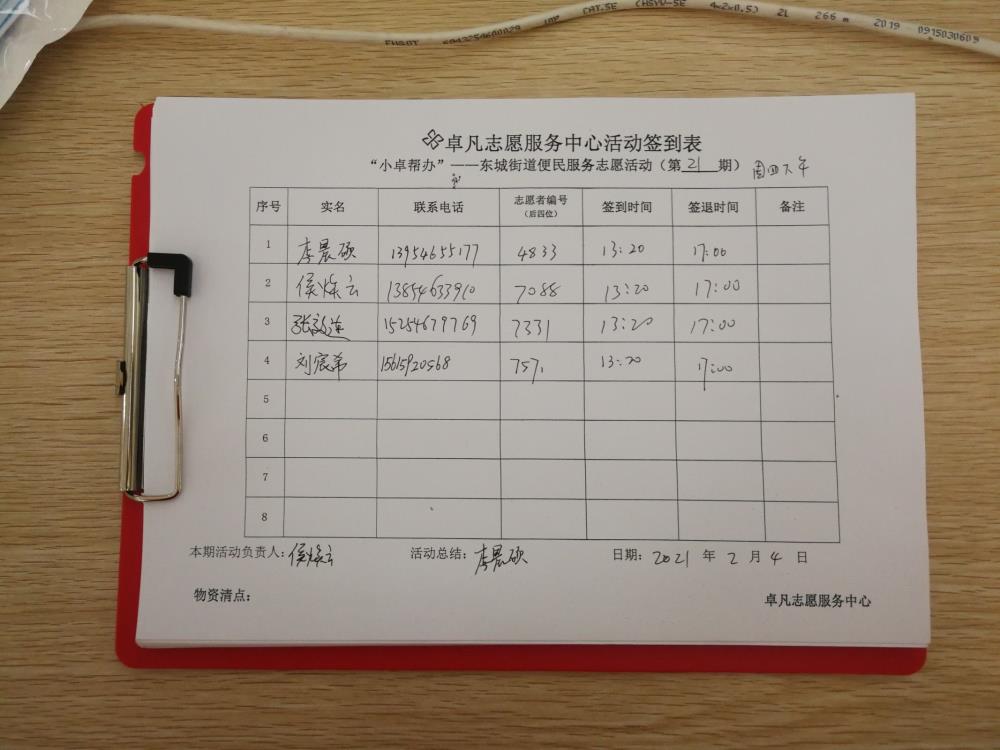 CAT.5E (HSYV-5E 4×2×0.5) 2L 266 m 2019 0915030609
卓凡志愿服务中心活动签到表
“小卓帮办”——东城街道便民服务志愿活动（第 21 期） 周四下午
序号 实名 联系电话 志愿者编号（后四位） 签到时间 签退时间 备注
1 李晨硕 13954655177 4833 13:20 17:00
2 侯焕云 13854633910 7088 13:20 17:00
3 15254679769 7331 13:20 17:00
4 刘宸希 15615920568 7571 13:20 17:00
5
6
7
8
本期活动负责人：侯焕云 活动总结：李晨硕 日期：2021 年 2 月 4 日
物资清点： 卓凡志愿服务中心